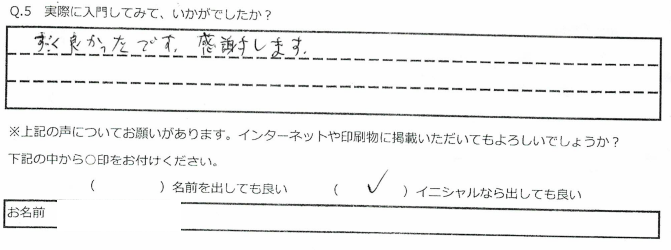 Q.5 実際に入門してみて、いかがでしたか？
すごく良かったです。感謝します。
※上記の声についてお願いがあります。インターネットや印刷物に掲載いただいてもよろしいでしょうか？
下記の中から○印をお付けください。
（　　　　）名前を出しても良い　　（　✓　）イニシャルなら出しても良い
お名前